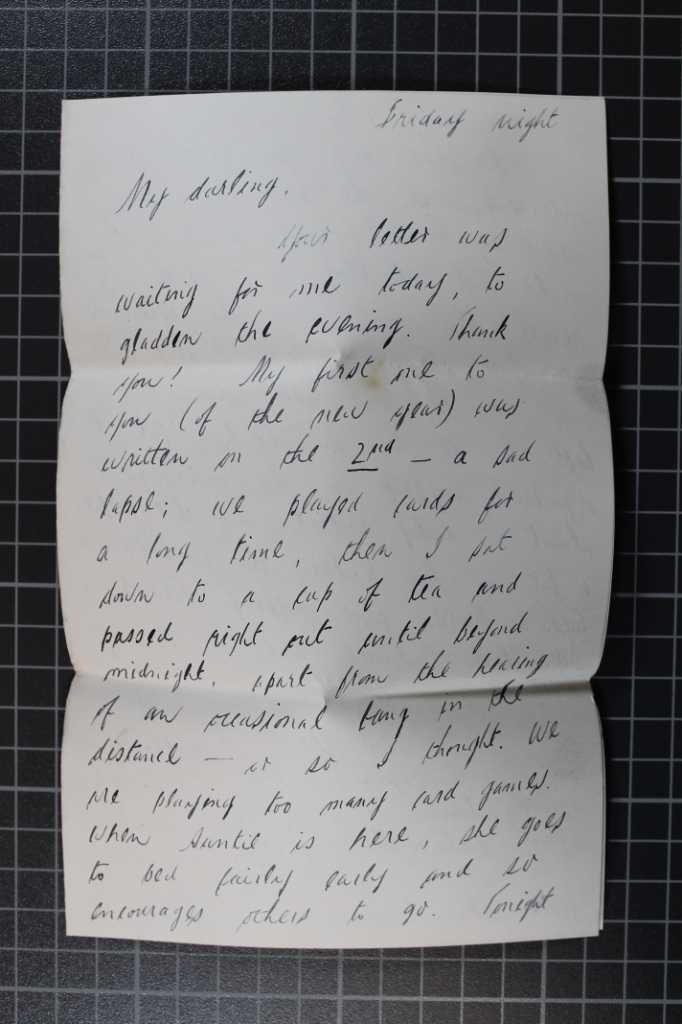 Friday night
My darling.
Your letter was
waiting for me today, to
gladden the evening. Thank
you! My first one to
you (of the new year) was
written on the 2nd — a sad
lapse; we played cards for
a long time, then I sat
down to a cup of tea and
passed right out until beyond
midnight, apart from the hearing
of an occasional bang in the
distance — or so I thought. We
are playing too many card games.
When Auntie is here, she goes
to bed fairly early and so
encourages others to go. Tonight